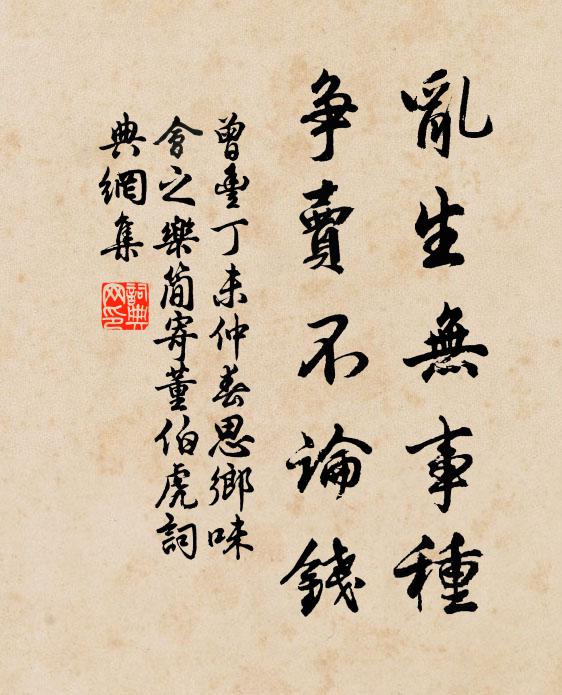 亂生無事種
争賣不論錢
曾豐丁未仲春思鄉味
會之樂簡寄董伯虎詞
典網集
詞典
网印